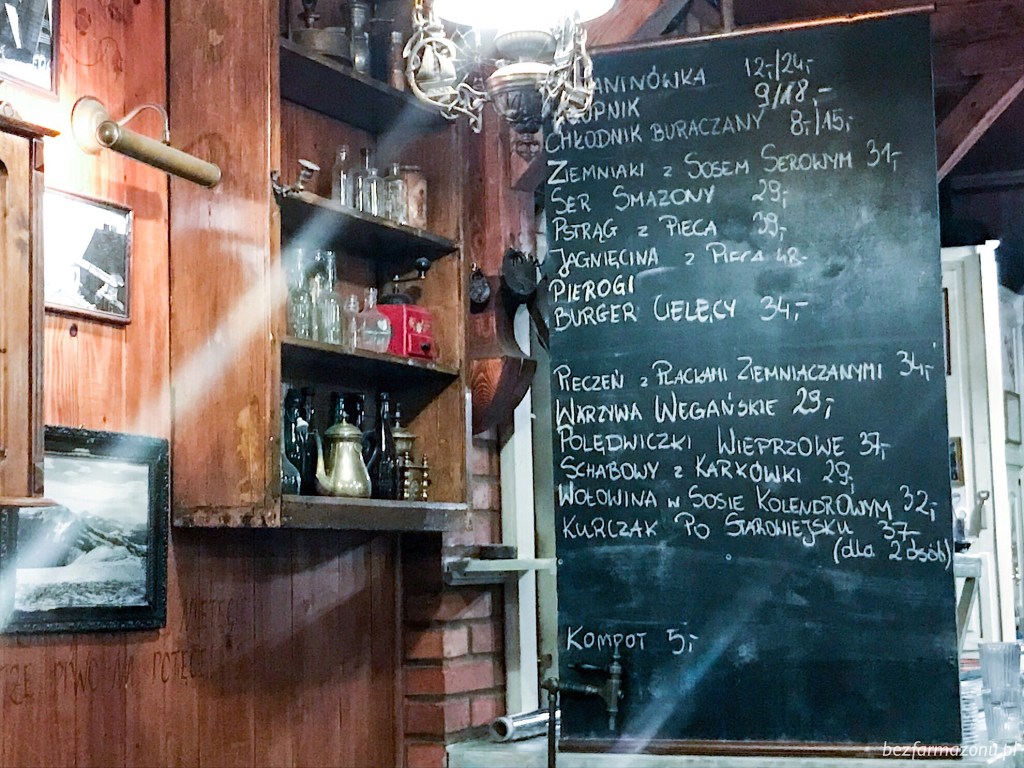 ANINÓWKA 12,-/24,-
UPNIK 9/18,-
CHŁODNIK BURACZANY 8,-/15,-
ZIEMNIAKI Z SOSEM SEROWYM 31,-
SER SMAZONY 29,-
PSTRĄG Z PIECA 39,-
JAGNIĘCINA Z PIECA 48-
PIEROGI
BURGER CIELĘCY 34,-
PIECZEŃ Z PLACKAMI ZIEMNIACZANYMI 34,-
WARZYWA WEGAŃSKIE 29,-
POLĘDWICZKI WIEPRZOWE 37,-
SCHABOWY Z KARKÓWKI 29,-
WOŁOWINA W SOSIE KOLENDROWYM 32,-
KURCZAK PO STAROWIEJSKU 37,-
(dla 2 osób)
KOMPOT 5,-
PIWO NA
bezfarmazonu.pl